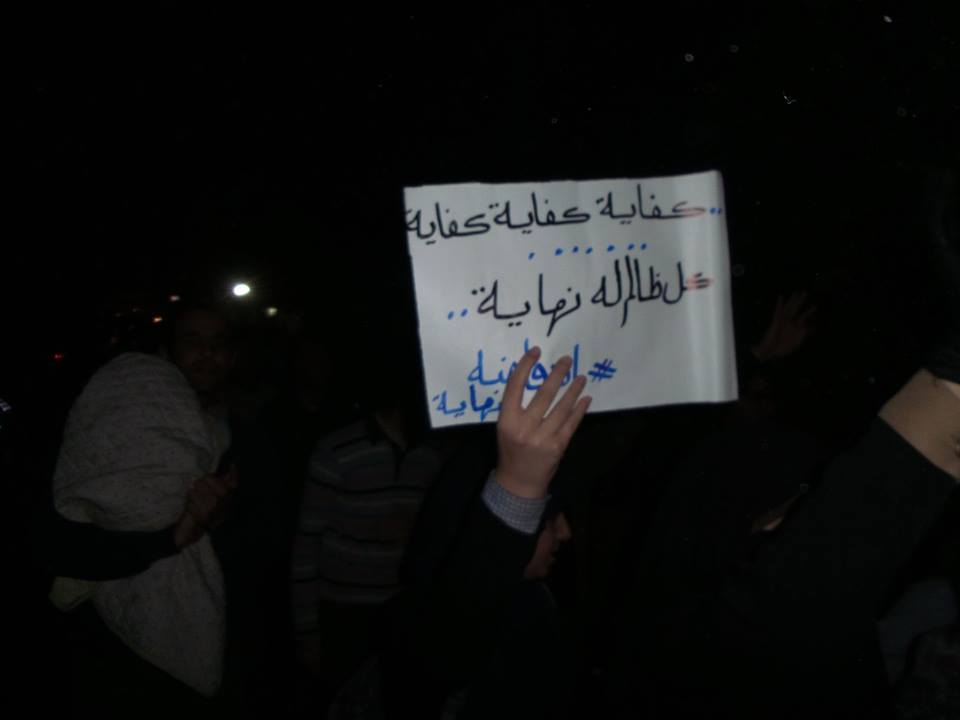 ..كفاية كفاية كفاية
......
كل ظالم له نهاية..
#
نهاية